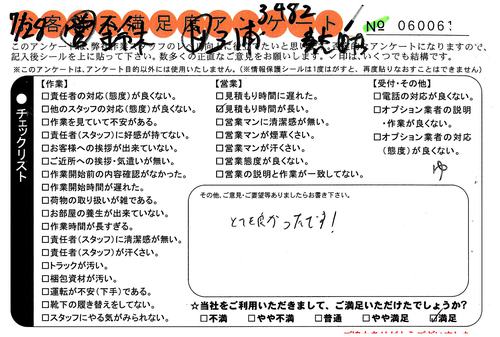 7/29
3482
お客様不満足度アンケート
№ 06006
このアンケートは、弊社作業スタッフのレベル向上に役立てたいと思い
アンケートになりますので、
記入後シールを上に貼って下さい。数多くの正直なご意見をお願いします。✓印は、いくつでも結構です。
※このアンケートは、アンケート目的以外には使用いたしません。(※情報保護シールは1度はがすと、再度貼りなおすことはできません)
チェックリスト
【作業】
□責任者の対応(態度)が良くない。
□他のスタッフの対応(態度)が良くない。
□作業を見ていて不安がある。
□責任者(スタッフ)に好感が持てない。
□お客様への挨拶が出来ていない。
□ご近所への挨拶・気遣いが無い。
□作業開始前の内容確認がなかった。
□作業開始時間が遅れた。
□荷物の取り扱いが雑である。
□お部屋の養生が出来ていない。
□作業時間が長すぎる。
□責任者(スタッフ)に清潔感が無い。
□責任者(スタッフ)が汗くさい。
□トラックが汚い。
□梱包資材が汚い。
□運転が不安(下手)である。
□靴下の履き替えをしてない。
□スタッフにやる気がみられない。
【営業】
□見積もり時間に遅れた。
☑見積もり時間が長い。
□営業マンに清潔感が無い。
□営業マンが煙草くさい。
□営業マンが汗くさい。
□営業態度が良くない。
□営業の説明と作業が一致してない。
【受付・その他】
□電話の対応が良くない。
□オプション業者の説明
・作業が良くない。
□オプション業者の対応
(態度)が良くない。
その他、ご意見・ご要望等ありましたらお書き下さい。
とても良かったです!
☆当社をご利用いただきまして、ご満足いただけたでしょうか?
□不満 □やや不満 □普通 □やや満足 ☑満足